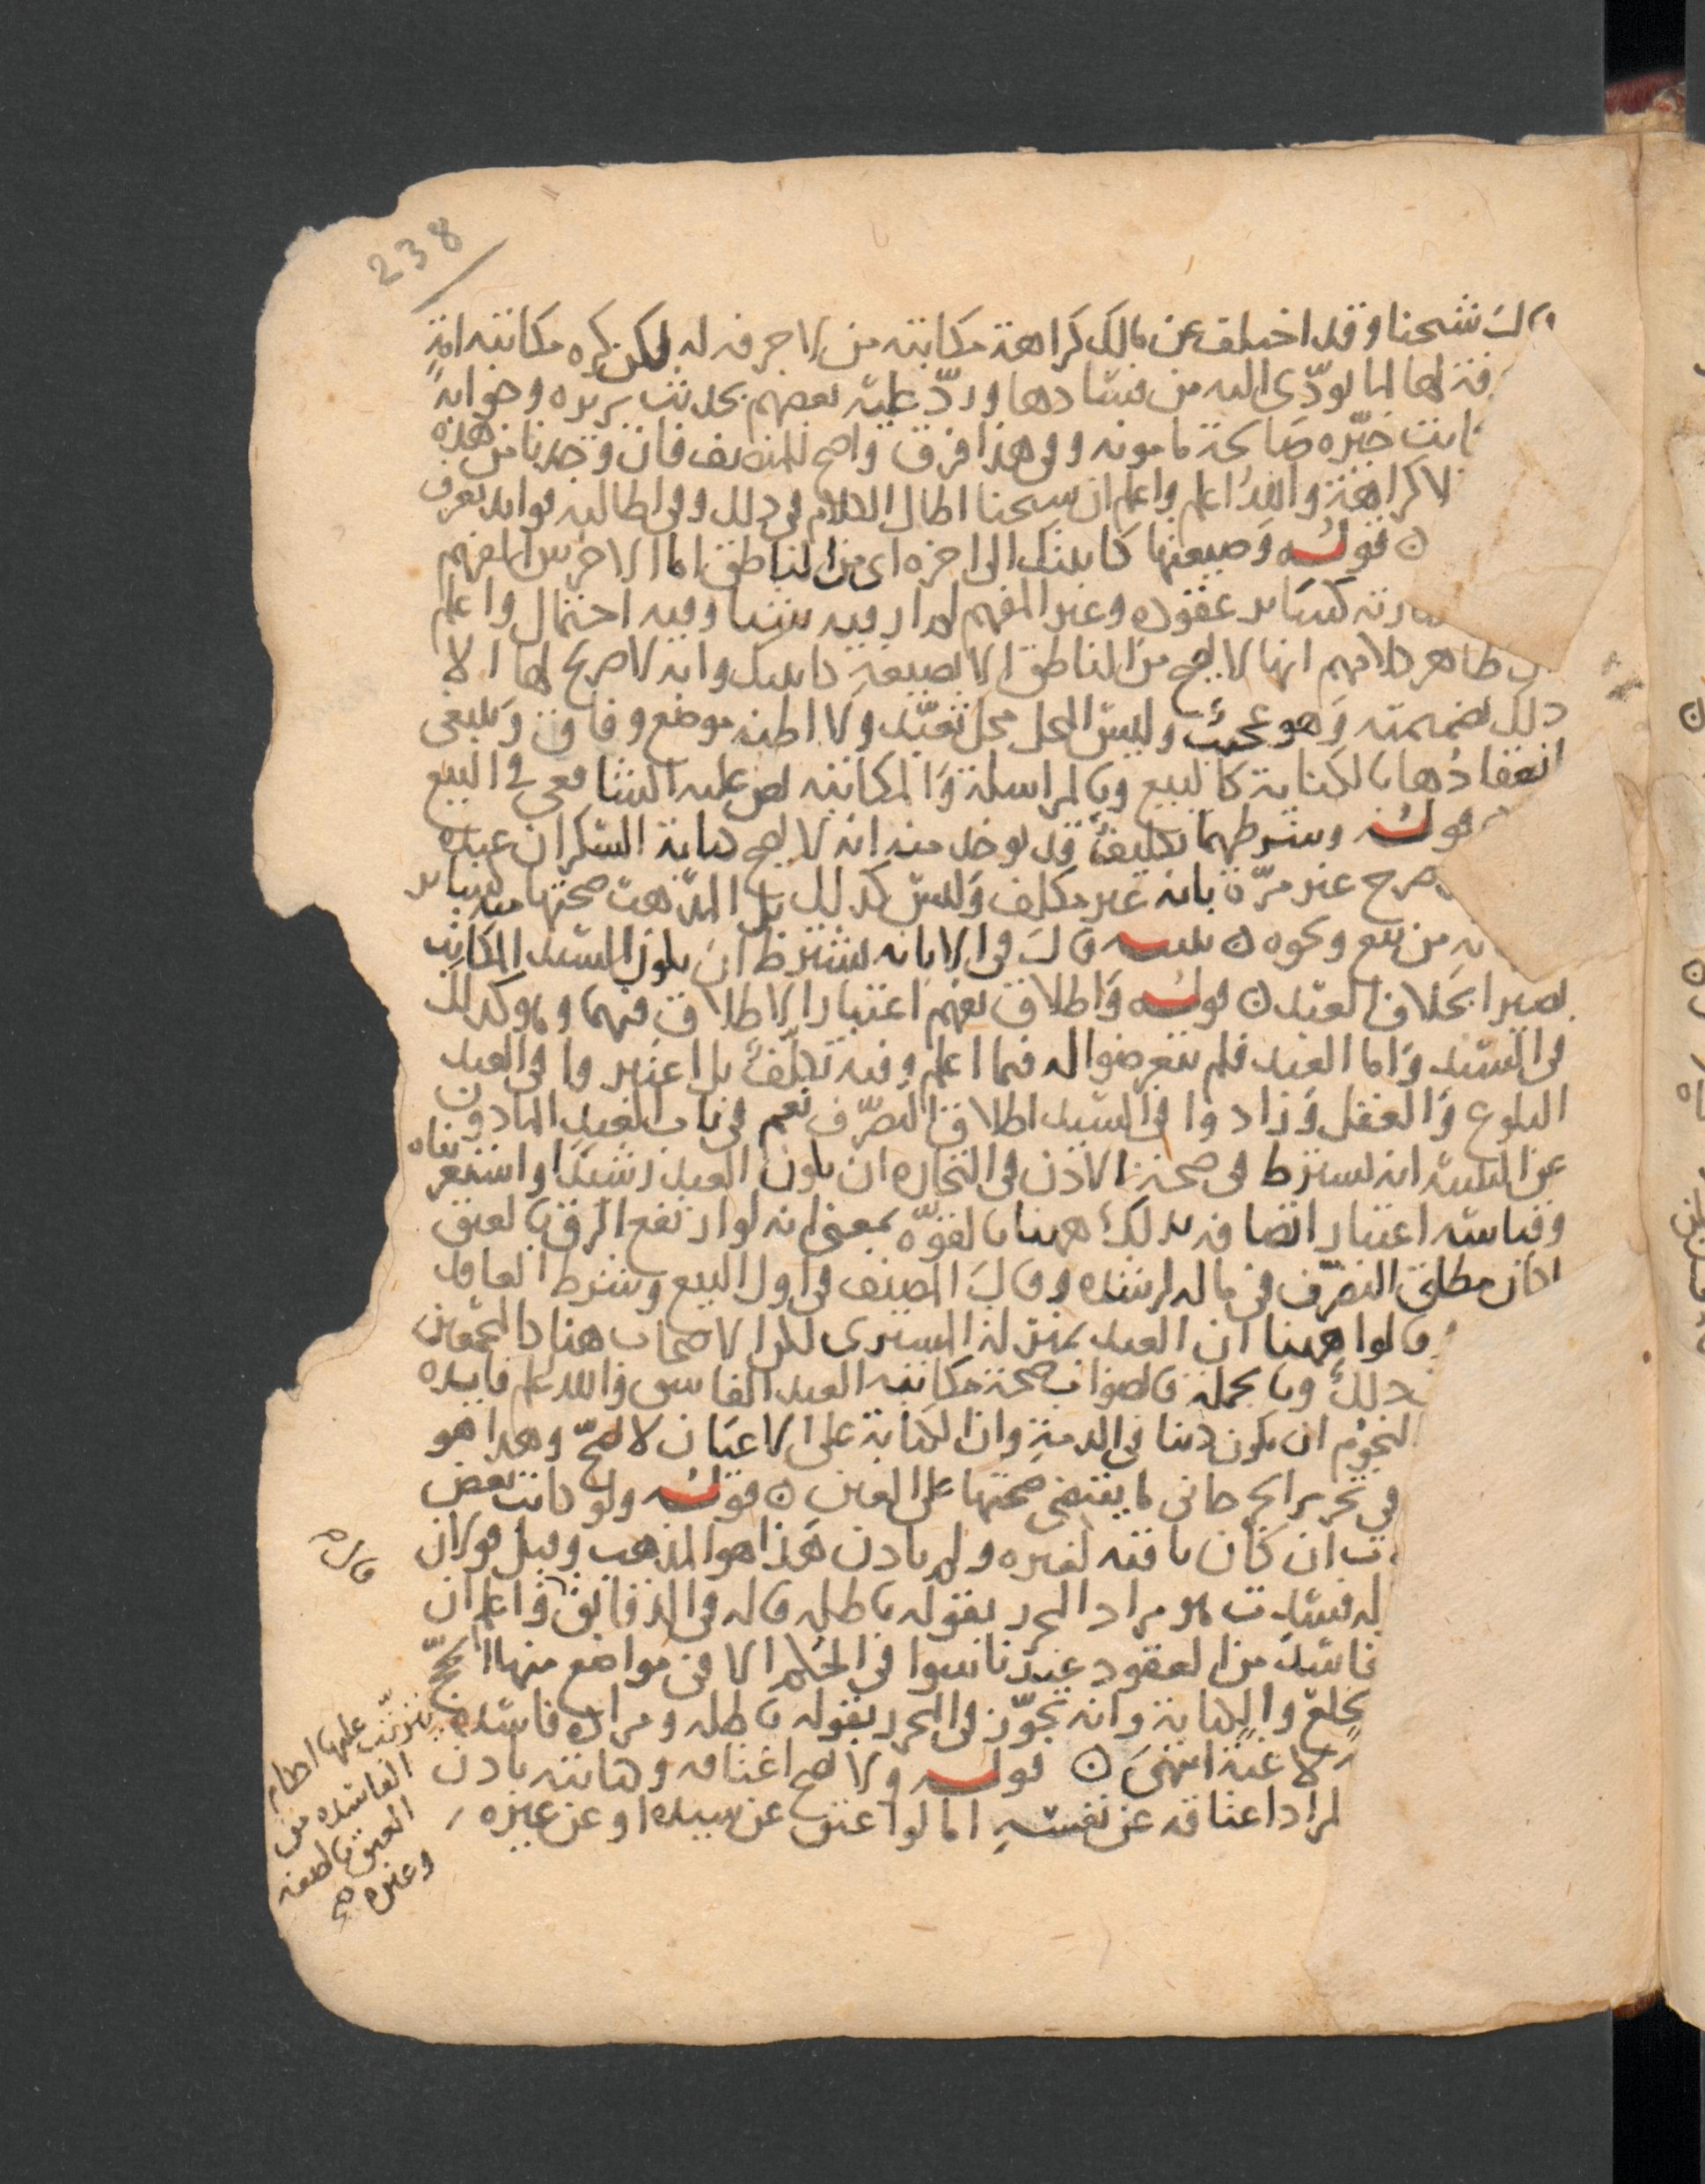 238
قال شيخنا وقد اختلف عن مالك كراهة مكاتبته من لا حرفة له لكن كره مكاتبته امة
حرفة لها لما يودّى اليه من فسادها وردّ عليه بعضهم بحديث بريره وجوابه
كانت خيّره صالحة مامونه وفى هذا فرق واضح للمنصف فان وجدنا من هذه
لا كراهة والله اعلم واعلم ان شيخنا اطال الكلام فى ذلك وفى اطالته فوايد تعرف
ه قوله وصيغتها كاتبتك الى اخره اى من الناطق اما الاخرس المفهم
كساير عقوده وغير المفهم لم ار فيه شيئا وفيه احتمال واعلم
ظاهر كلامهم انها لا تصح من الناطق الا بصيغة كاتبتك وانه لا صريح لها الا
ذلك بضميمته وهو عجيب وليس المحل محل تعبّد ولا اظنه موضع وفاق وينبغى
انعقادها بالكناية كالبيع وبالمراسلة والمكاتبه نص عليه الشافعي فى البيع
قوله وشرطهما تكليف قد يوخذ منه انه لا يصح كتابة السكران عبده
صرح غير مرّة بانه غير مكلف وليس كذلك بل المذهب صحتها منه كساير
من بيع ونحوه ه تنبيه قال فى الابانه يشترط ان يكون السيد المكاتب
بصيرا بخلاف العبد ه قوله واطلاق يفهم اعتبار الاطلاق فيهما وهو كذلك
فى السيد واما العبد فلم يتعرضوا له فيما اعلم وفيه تكلّف بل اعتبروا فى العبد
البلوغ والعقل وزادوا فى السيد اطلاق التصرّف نعم فى باب العبد الماذون
عن التتمة انه يشترط فى صحة الاذن فى التجاره ان يكون العبد رشيدا واستغربناه
وقياسه اعتبار اتصافه بذلك ههنا بالقوّه بمعنى انه لو ارتفع الرق بالعتق
لكان مطلق التصرّف فى ماله لرشده وقال المصنف فى اول البيع وشرط العاقد
قالوا ههنا ان العبد بمنزلة المشترى لكن الاصحاب هنا كالمجمعين
ذلك وبالجملة فالصواب صحة مكاتبة العبد الفاسق والله اعلم فايده
النجوم ان يكون دينا فى الذمة وان الكتابة على الاعيان لا تصحّ وهذا هو
فى تحرير الجرجانى ما يقتضى صحتها على العين ه قوله ولو كاتب بعض
ان كان باقيه لغيره ولم ياذن هذا هو المذهب وقيل قولان
فسدت هو مراد المحرر بقوله باطله قاله فى الدقايق واعلم ان
فاسد من العقود عندنا سوا فى الحكم الا فى مواضع منها الحج
الخلع والكتابة وانه تجوّز فى المحرر بقوله باطله ومراده فاسده
لاغية انتهى ه قوله ولا يصح اعتاقه وكتابته باذن
المراد اعتاقه عن نفسه اما لو اعتق عن سيده او عن غيره
يترتّب عليها احكام
الفاسده من
العتق بالصفه
وغيره صح